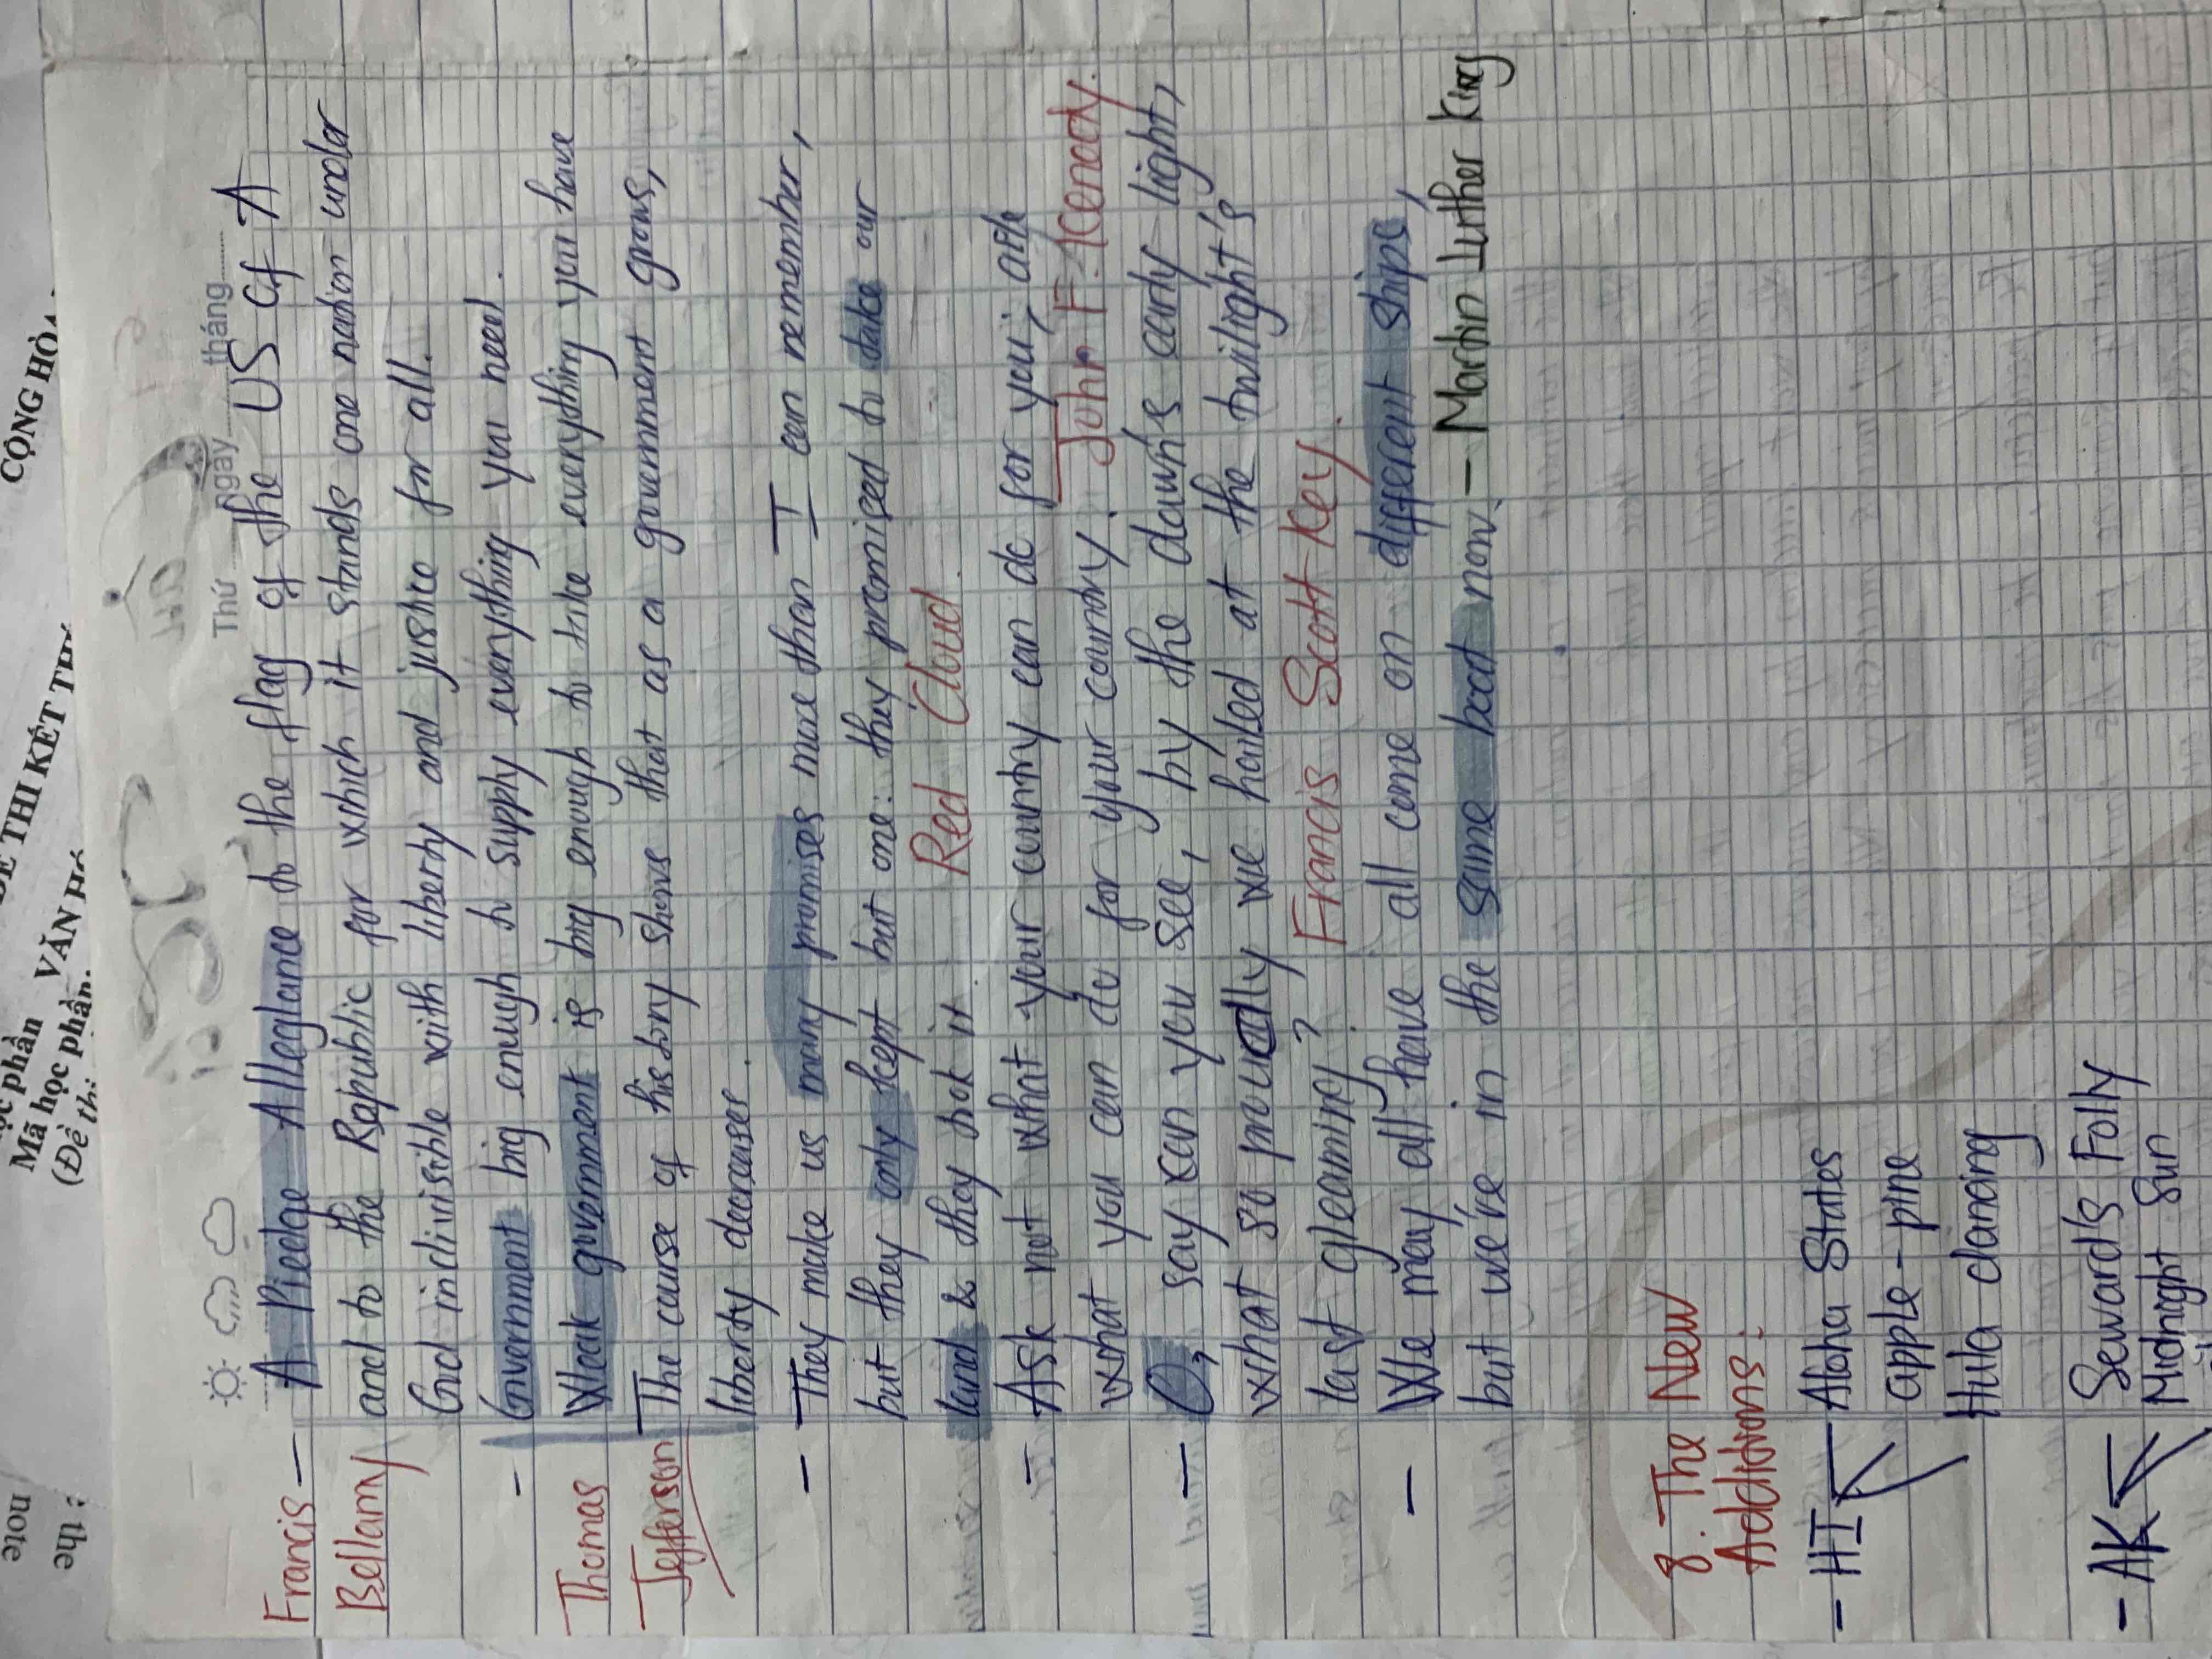 CỘNG HÒA
ĐỀ THI KẾT TH
học phần VĂN HÓ
Mã học phần:
(Đề thi
note
the
Thứ ngày tháng
Francis Bellamy
- A Pledge Allegiance to the flag of the US of A
and to the Republic for which it stands one nation under
God indivisible with liberty and justice for all.
- Government big enough to supply everything you need.
Thomas Jefferson
Weak government is big enough to take everything you have
The course of history shows that as a government grows,
liberty decreases.
- They make us many promises more than I can remember,
but they only kept but one: they promised to take our
land & they took it. Red Cloud.
- Ask not what your country can do for you; ask
what you can do for your country. John F. Kenedy.
- O, say can you see, by the dawn's early light,
what so proudly we hailed at the twilight's
last gleaming? Francis Scott Key.
- We may all have all come on different ships,
but we're in the same boat now. - Martin Luther King
8. The New
Additions:
- HI Aloha States
apple-pine
Hula dancing
- AK Seward's Folly
Midnight Sun